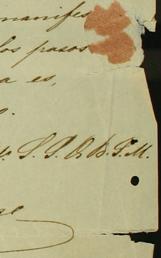 manifes
los pasos
a es,
S. S. Q. B. S. M.